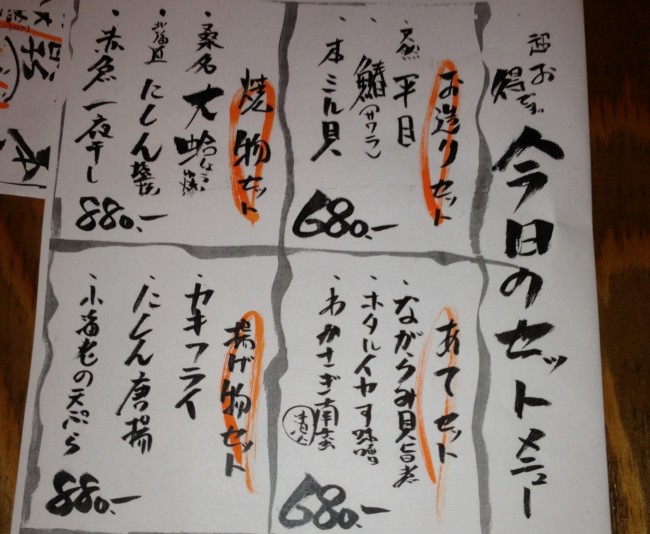 超お得です。
今日のセットメニュー
お造りセット
・天然 平目
鰆(サワラ)
・本ミル貝
680.-
焼物セット
・桑名 大蛤
・北海道 たくん
・赤魚一夜干し
880.-
あてセット
・ながらみ貝旨煮
・ホタルイカ酢味噌
・わかさぎ南蛮漬
680.-
揚げ物セット
・カキフライ
・たくん唐揚
・小海老の天ぷら
880.-